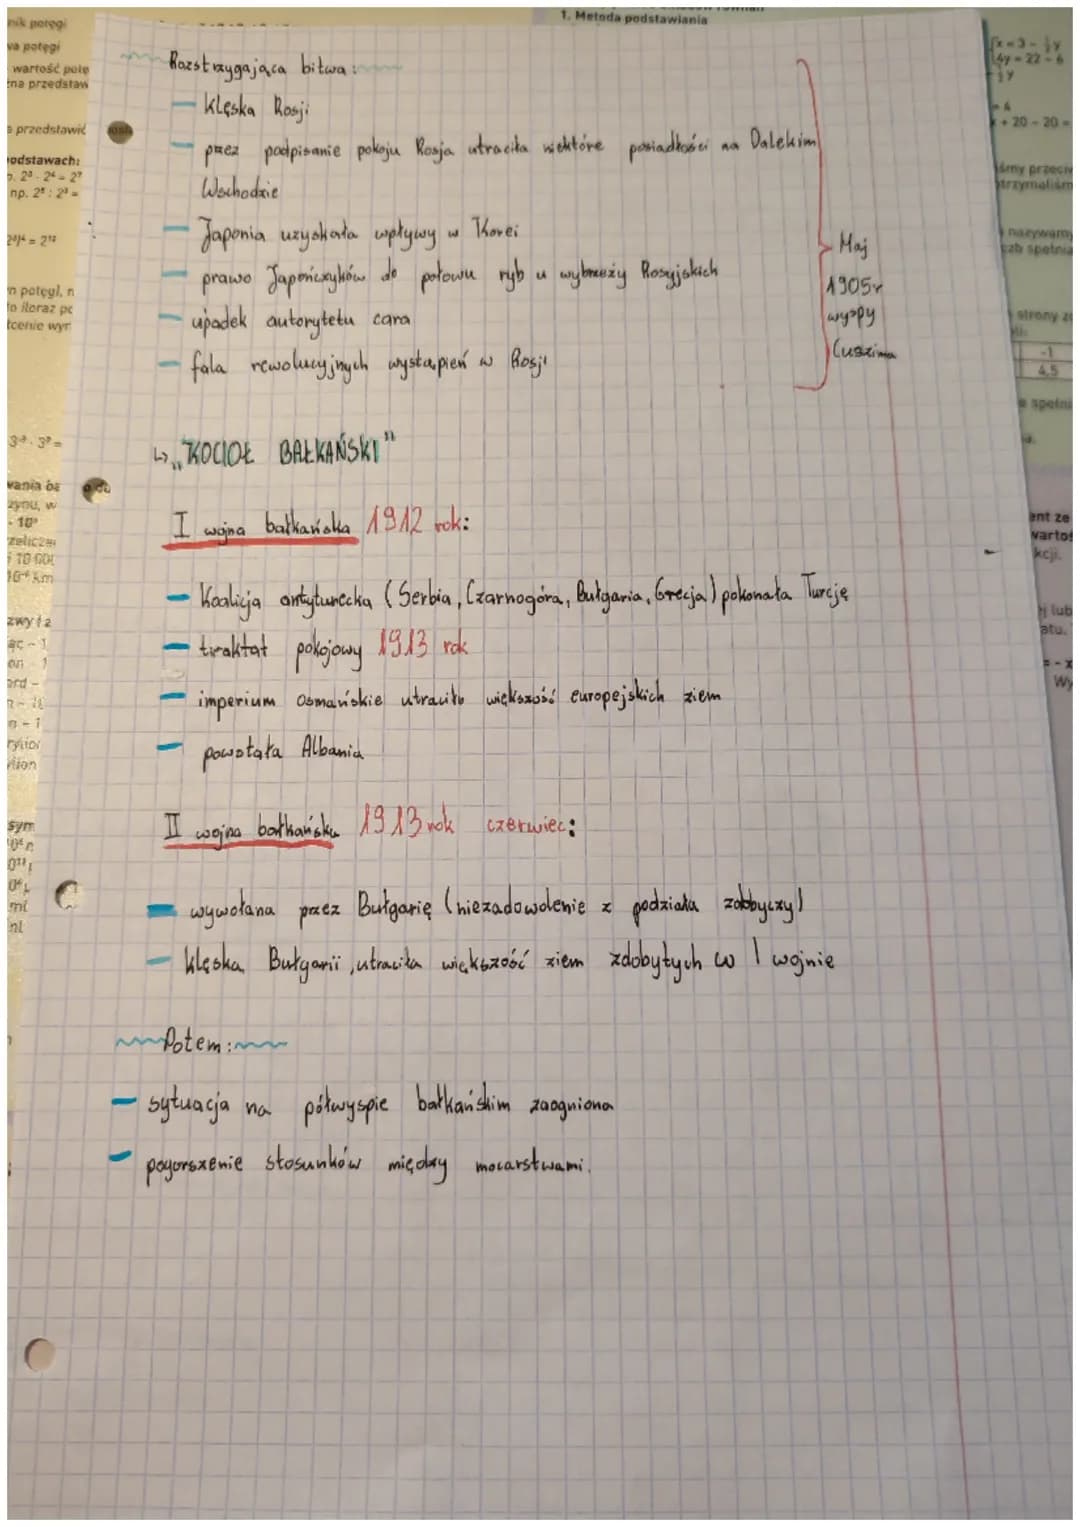 1. Metoda podstawiania
Rozstrzygająca bitwa:
- Klęska Rosji
- przez podpisanie pokoju Rosja utraciła niektóre posiadłości na Dalekim
Wschodzie
- Japonia uzyskała wpływy w Korei
- prawo Japończyków do połowu ryb u wybrzeży Rosyjskich
- upadek autorytetu cara
- fala rewolucyjnych wystąpień w Rosji
Maj
1905r
wyspy
Cuszima
↳ „KOCIOŁ BAŁKAŃSKI"
I wojna bałkańska 1912 rok:
- Koalicja antyturecka (Serbia, Czarnogóra, Bułgaria, Grecja) pokonała Turcję
- traktat pokojowy 1913 rok
- imperium osmańskie utraciło większość europejskich ziem
- powstała Albania
II wojna bałkańska 1913 rok czerwiec:
- wywołana przez Bułgarię (niezadowolenie z podziału zdobyczy)
- klęska Bułgarii, utraciła większość ziem zdobytych w I wojnie
Potem:
- sytuacja na półwyspie bałkańskim zaogniona
- pogorszenie stosunków między mocarstwami.
nik potęgi
wa potęgi
wartość potę
na przedstaw
przedstawić
odstawach:
np. 2⁵ : 2³ =
n potęgi, n
o iloraz po
x = 3 -
4y = 22 - 6
+ 20 - 20 =
śmy przeciw
trzymaliśm
nazywamy
czb spełnia
strony
-1
4,5
spełni
ent ze
wartoś
kcji.
lub
atu.
Wy